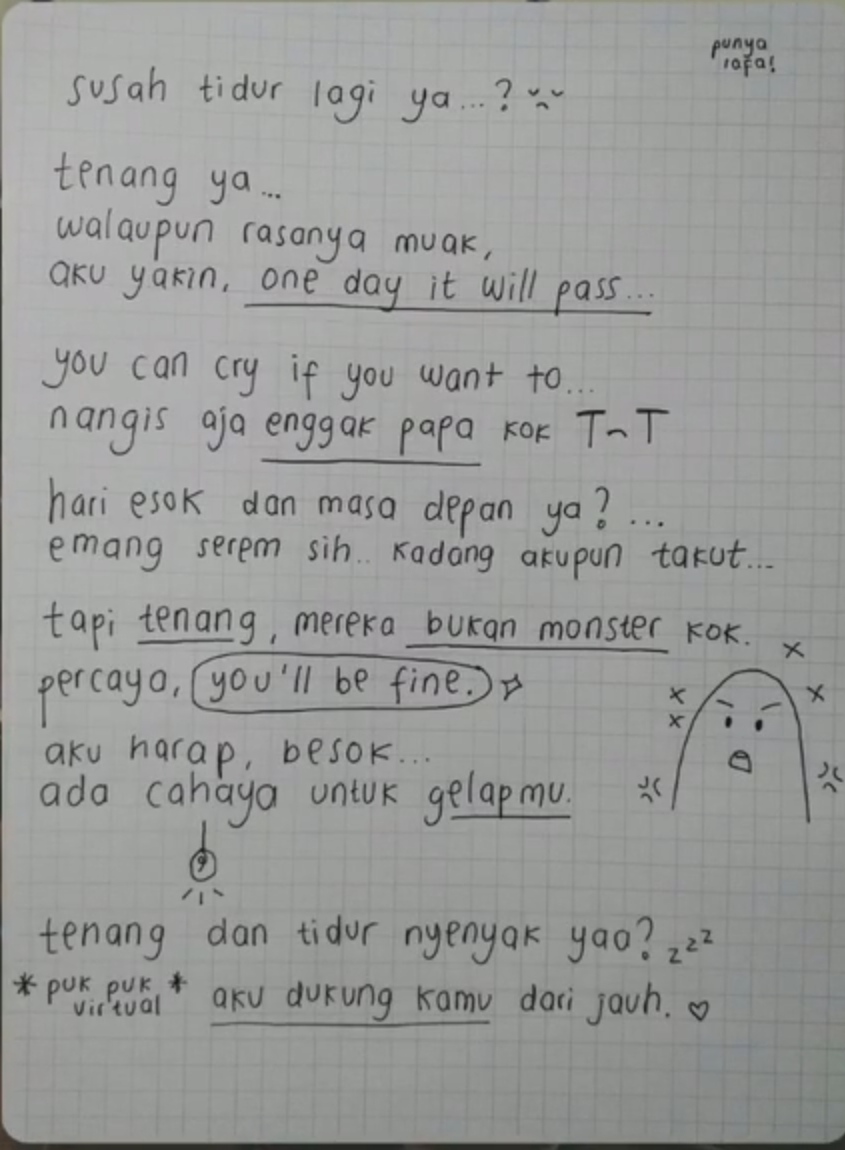 punya
rafa!
susah tidur lagi ya...?
tenang ya...
walaupun rasanya muak,
aku yakin, one day it will pass...
you can cry if you want to...
nangis aja enggak papa kok T~T
hari esok dan masa depan ya?...
emang serem sih.. kadang akupun takut...
tapi tenang, mereka bukan monster kok.
percaya, you'll be fine.
aku harap, besok...
ada cahaya untuk gelapmu.
tenang dan tidur nyenyak yao? zzz
*puk puk virtual* aku dukung kamu dari jauh. ♡